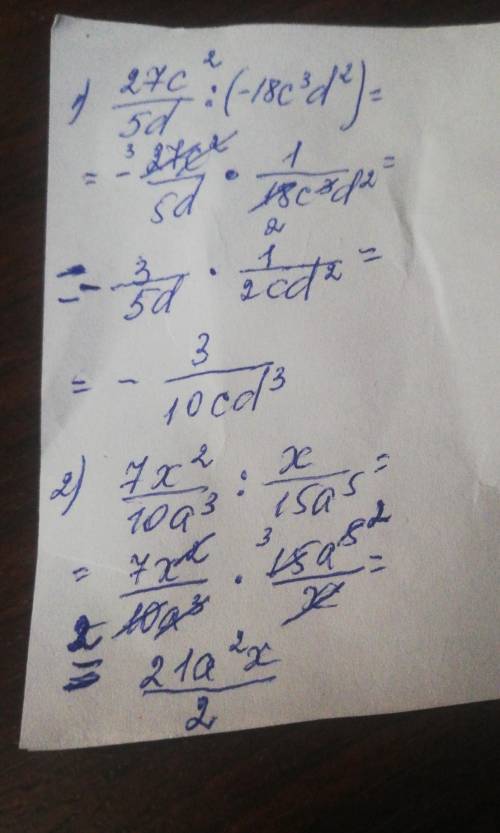 1) 27c²/5d : (-18c³d²) =
= - ³ 27c²/5d · 1/18c³d² ₂ =
= - 3/5d · 1/2cd² =
= - 3/10cd³
2) 7x²/10a³ : x/15a⁵ =
= 7x²/10a³ ₂ · ³ 15a⁵ ²/x =
= 21a²x/2